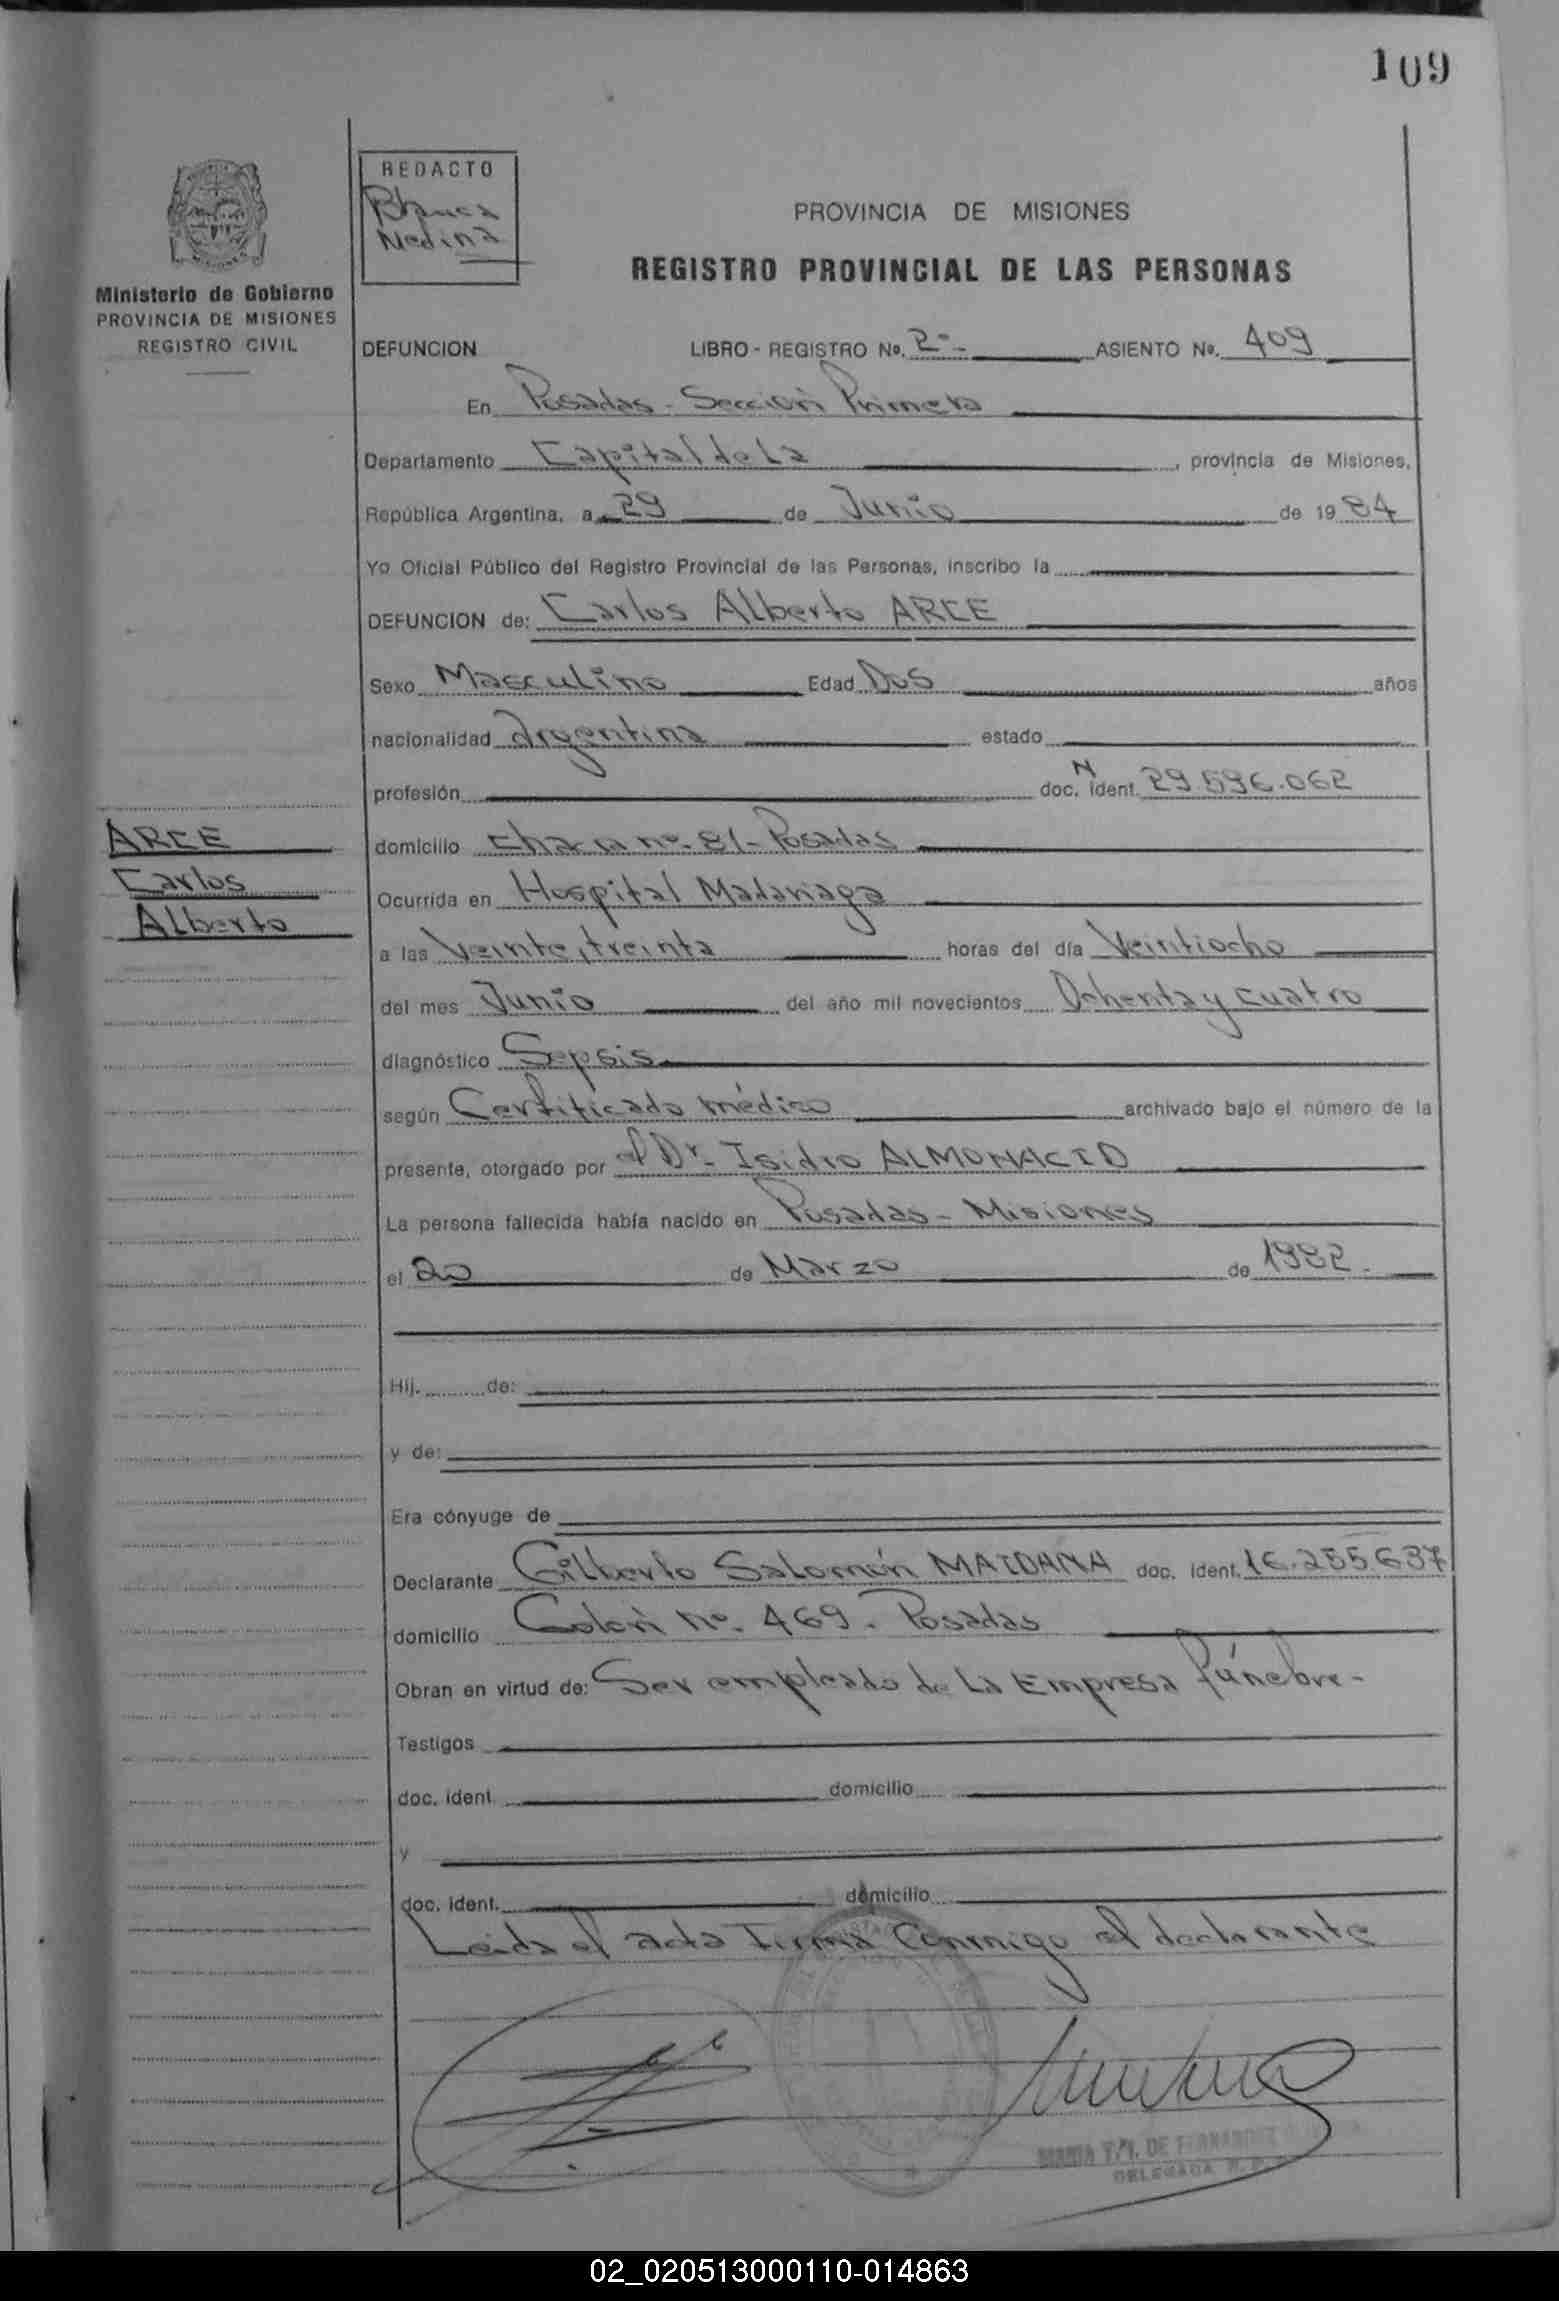 109
REDACTO
Blanca
Medina
MISIONES
Ministerio de Gobierno
PROVINCIA DE MISIONES
REGISTRO CIVIL
PROVINCIA DE MISIONES
REGISTRO PROVINCIAL DE LAS PERSONAS
DEFUNCION LIBRO - REGISTRO No. 2º- ASIENTO No. 409
En Posadas - Sección Primera
Departamento Capital de La, provincia de Misiones,
República Argentina, a 29 de Junio de 1984
Yo Oficial Público del Registro Provincial de las Personas, inscribo la
DEFUNCION de: Carlos Alberto ARCE
Sexo Masculino Edad Dos años
nacionalidad Argentina estado
profesión doc. ident. N 29.596.062
domicilio chacra nº. 81 - Posadas
Ocurrida en Hospital Madariaga
a las Veinte, treinta horas del día Veintiocho
del mes Junio del año mil novecientos Ochenta y cuatro
diagnóstico Sepsis
según Certificado médico archivado bajo el número de la
presente, otorgado por el Dr. Isidro ALMONACID
La persona fallecida había nacido en Posadas - Misiones
el 20 de Marzo de 1982.
Hij. de:
y de:
Era cónyuge de
Declarante Gilberto Salomón MAIDANA doc. ident. 16.255.637
domicilio Colón nº. 469. Posadas
Obran en virtud de: Ser empleado de La Empresa fúnebre-
Testigos
doc. ident. domicilio
y
doc. ident. domicilio
Leida el acta firma Conmigo el declarante
ARCE
Carlos
Alberto
MARIA T. DE FERNANDEZ
DELEGADA R. P.
02_020513000110-014863